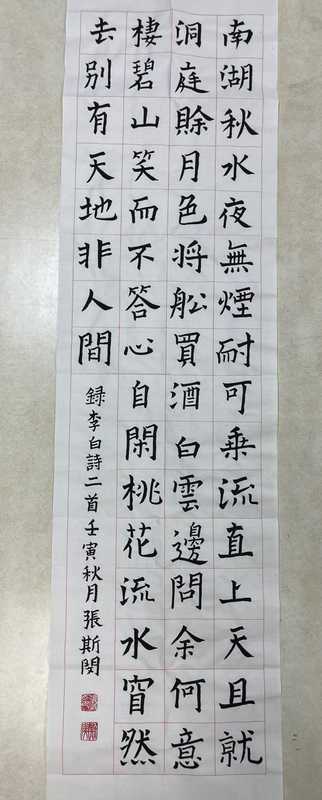 南湖秋水夜無煙耐可乗流直上天且就
洞庭賒月色将舩買酒白雲邊問余何意
棲碧山笑而不答心自閑桃花流水窅然
去別有天地非人間
録李白詩二首壬寅秋月張斯閔